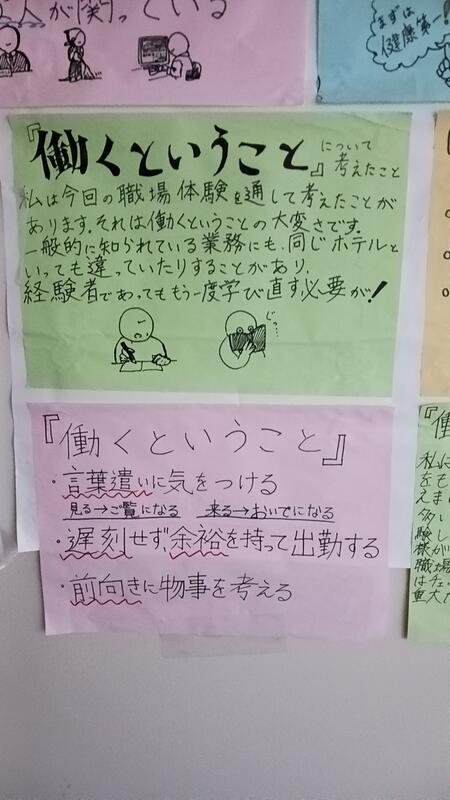 人が働っている
まずは
健康第一
『働くということ』について
考えたこと
私は今回の職場体験を通して考えたことが
あります。それは働くということの大変さです。
一般的に知られている業務にも、同じホテルと
いっても違っていたりすることがあり、
経験者であってももう一度学び直す必要が!
じっ…
『働くということ』
・言葉遣いに気をつける
見る→ご覧になる 来る→おいでになる
・遅刻せず、余裕を持って出勤する
・前向きに物事を考える
『働
私は
をも
えま
多し
験し
様が
職場
はチェ
重大